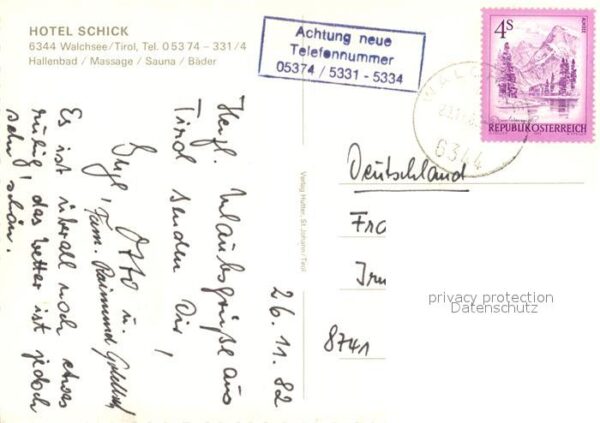 HOTEL SCHICK
6344 Walchsee/Tirol, Tel. 05374 – 331/4
Hallenbad / Massage / Sauna / Bäder
Achtung neue
Telefonnummer
05374 / 5331 - 5334
4S
REPUBLIK ÖSTERREICH
6344
26.11.82
Herzl. Urlaubsgrüße aus
Tirol senden Dir
Otto u.
Fam. Raimund
Es ist überall noch etwas
ruhig, das Wetter ist jedoch
sehr schön!
Verlag Hutter, St. Johann/Tirol
Deutschland
Fra
8741
privacy protection
Datenschutz